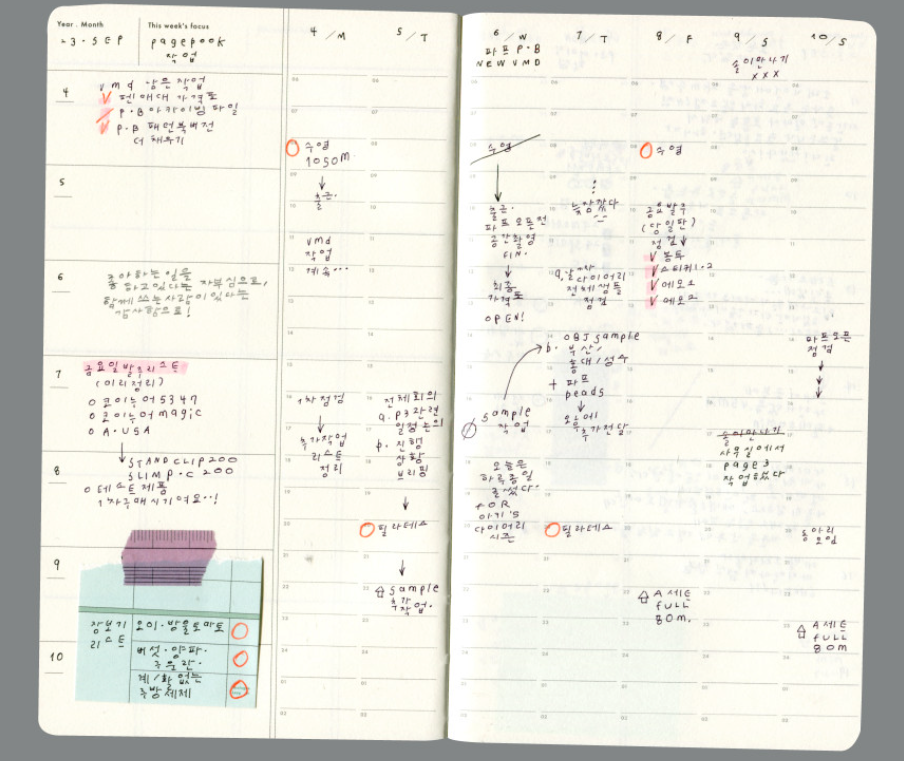 Year . Month
23 · SEP
This week's focus
pagebook
작업
4
vmd 남은 작업
펜 애대 가격표
P·B 아카이빙 파일
P·B 패턴북버전
더 채우기
5
6
좋아하는 일을
하고있다는 자부심으로,
함께 쓰는 사람이 있다는
감사함으로!
7
금요일발주리스트
(미리정리)
o 코이누어 5347
o 코이누어 magic
o A·USA
↓
8
STANDCLIP 200
SLIMP·C 200
o 테스트제품
1차구매시기여요··!
9
장보기
리스트
오이·방울토마토
버섯·양파·
구운란·
계/활없는
주방세제
10
4 / M
수영
1050m
↓
출근·
vmd
작업
계속···
1차점검
↓
추가작업
리스트
정리
5 / T
전체회의
a. P3관련
일정논의
b. 진행
상황
브리핑
↓
필라테스
↓
sample
추가
작업·
6 / W
파프 P·B
NEW VMD
수영
↓
출근·
파프오픈전
공간촬영
FIN·
↓
최종
가격표
OPEN!
sample
작업
오늘은
하루종일
글썼다·
FOR
아기's
다이어리
시즌
7 / T
늦잠잤다
다이어리
전체샘플
점검
OBJ sample
b. 부산/
홍대/성수
+ 파프
peads
↓
오후에
추가전달
필라테스
8 / F
수영
금요발주
(당일판)
점검↓
봉투
스티커1·2
메모1
메모2
A세트
full
80m.
9 / S
솔이만나기
xxx
솔이만나기
사무실에서
page3
작업했다
10 / S
파프오픈
점검
↓
↓
↓
동아리
모임
A세트
full
80m